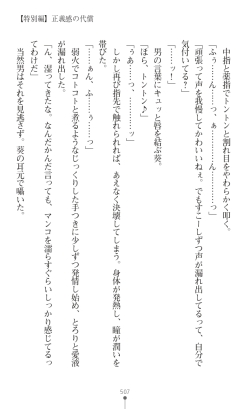 【特別編】正義感の代償
中指と薬指でトントンと割れ目をやわらかく叩く。
「ふぅ……ん、っ……ぁ………っ」
「頑張って声を我慢してかわいいねぇ。でもすこーしずつ声が漏れ出してるって、自分で
気付いてる？」
「……ッ！」
男の言葉にキュッと唇を結ぶ葵。
「ほら、トントン♪」
「うあっ……っ……」
しかし再び指先で触れられれば、あえなく決壊してしまう。身体が発熱し、瞳が潤いを
帯びた。
「……ぁん、ふ……ぅ……っ」
弱火でコトコトと煮るようなじっくりした手つきに少しずつ発情し始め、とろりと愛液
が漏れ出した。
「ん、湿ってきたな。なんだかんだ言っても、マンコを濡らすぐらいしっかり感じてるっ
てわけだ」
当然男はそれを見逃さず、葵の耳元で囁いた。
507